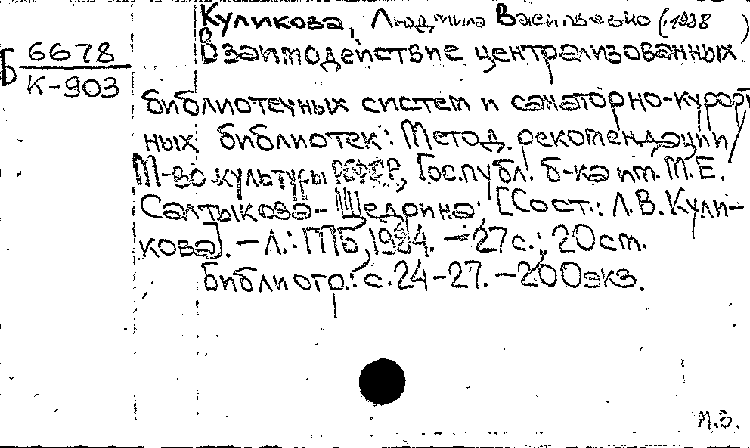 Куликова, Людмила Васильевна (1938 )
Б 6678
К-903
Взаимодействие централизованных
библиотечных систем и санаторно-курорт
ных библиотек: Метод. рекомендации/
М-во культуры РСФСР, Гос.публ. б-ка им. М.Е.
Салтыкова-Щедрина; [Сост.: Л.В.Кули-
кова]. - Л.: ГПБ, 1984. - 27с.; 20см.
Библиогр.: с.24-27. - 200экз.